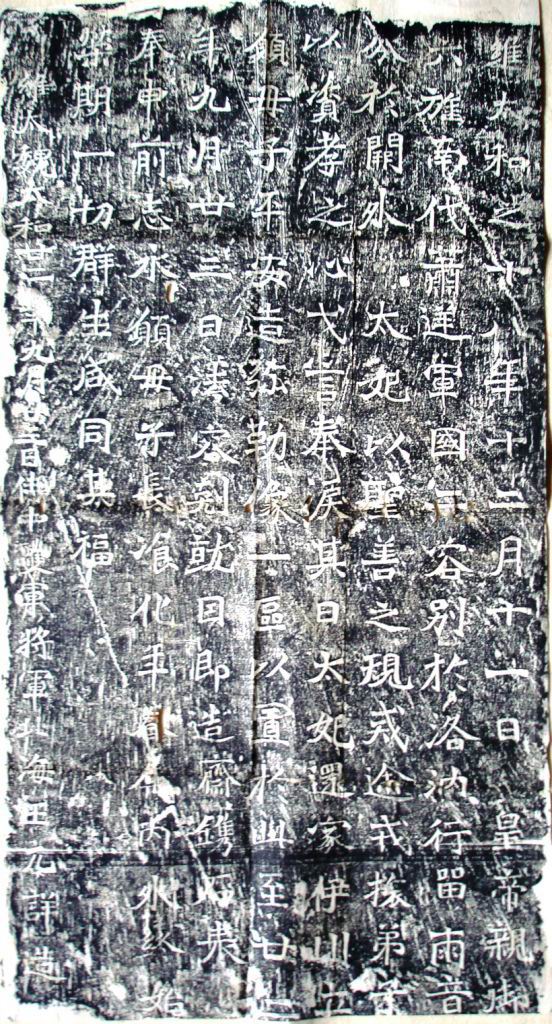 維太和之十八年十二月十一日 皇帝親御
六旌南伐蕭逆軍國二容別於洛汭行留兩音
分於闕外 太妃以聖善之規戒途戎旅弟子
以資孝之心戈言奉淚其日太妃還家伊川立
願母子平安造弥勒像一區以置於此至廿二
年九月廿三日法容剋就因即造齋鐫石表
奉申前志永願母子長飡化年眷內外終始
榮期一切群生咸同其福
維大魏太和廿二年九月廿三日侍中護軍將軍北海王元詳造